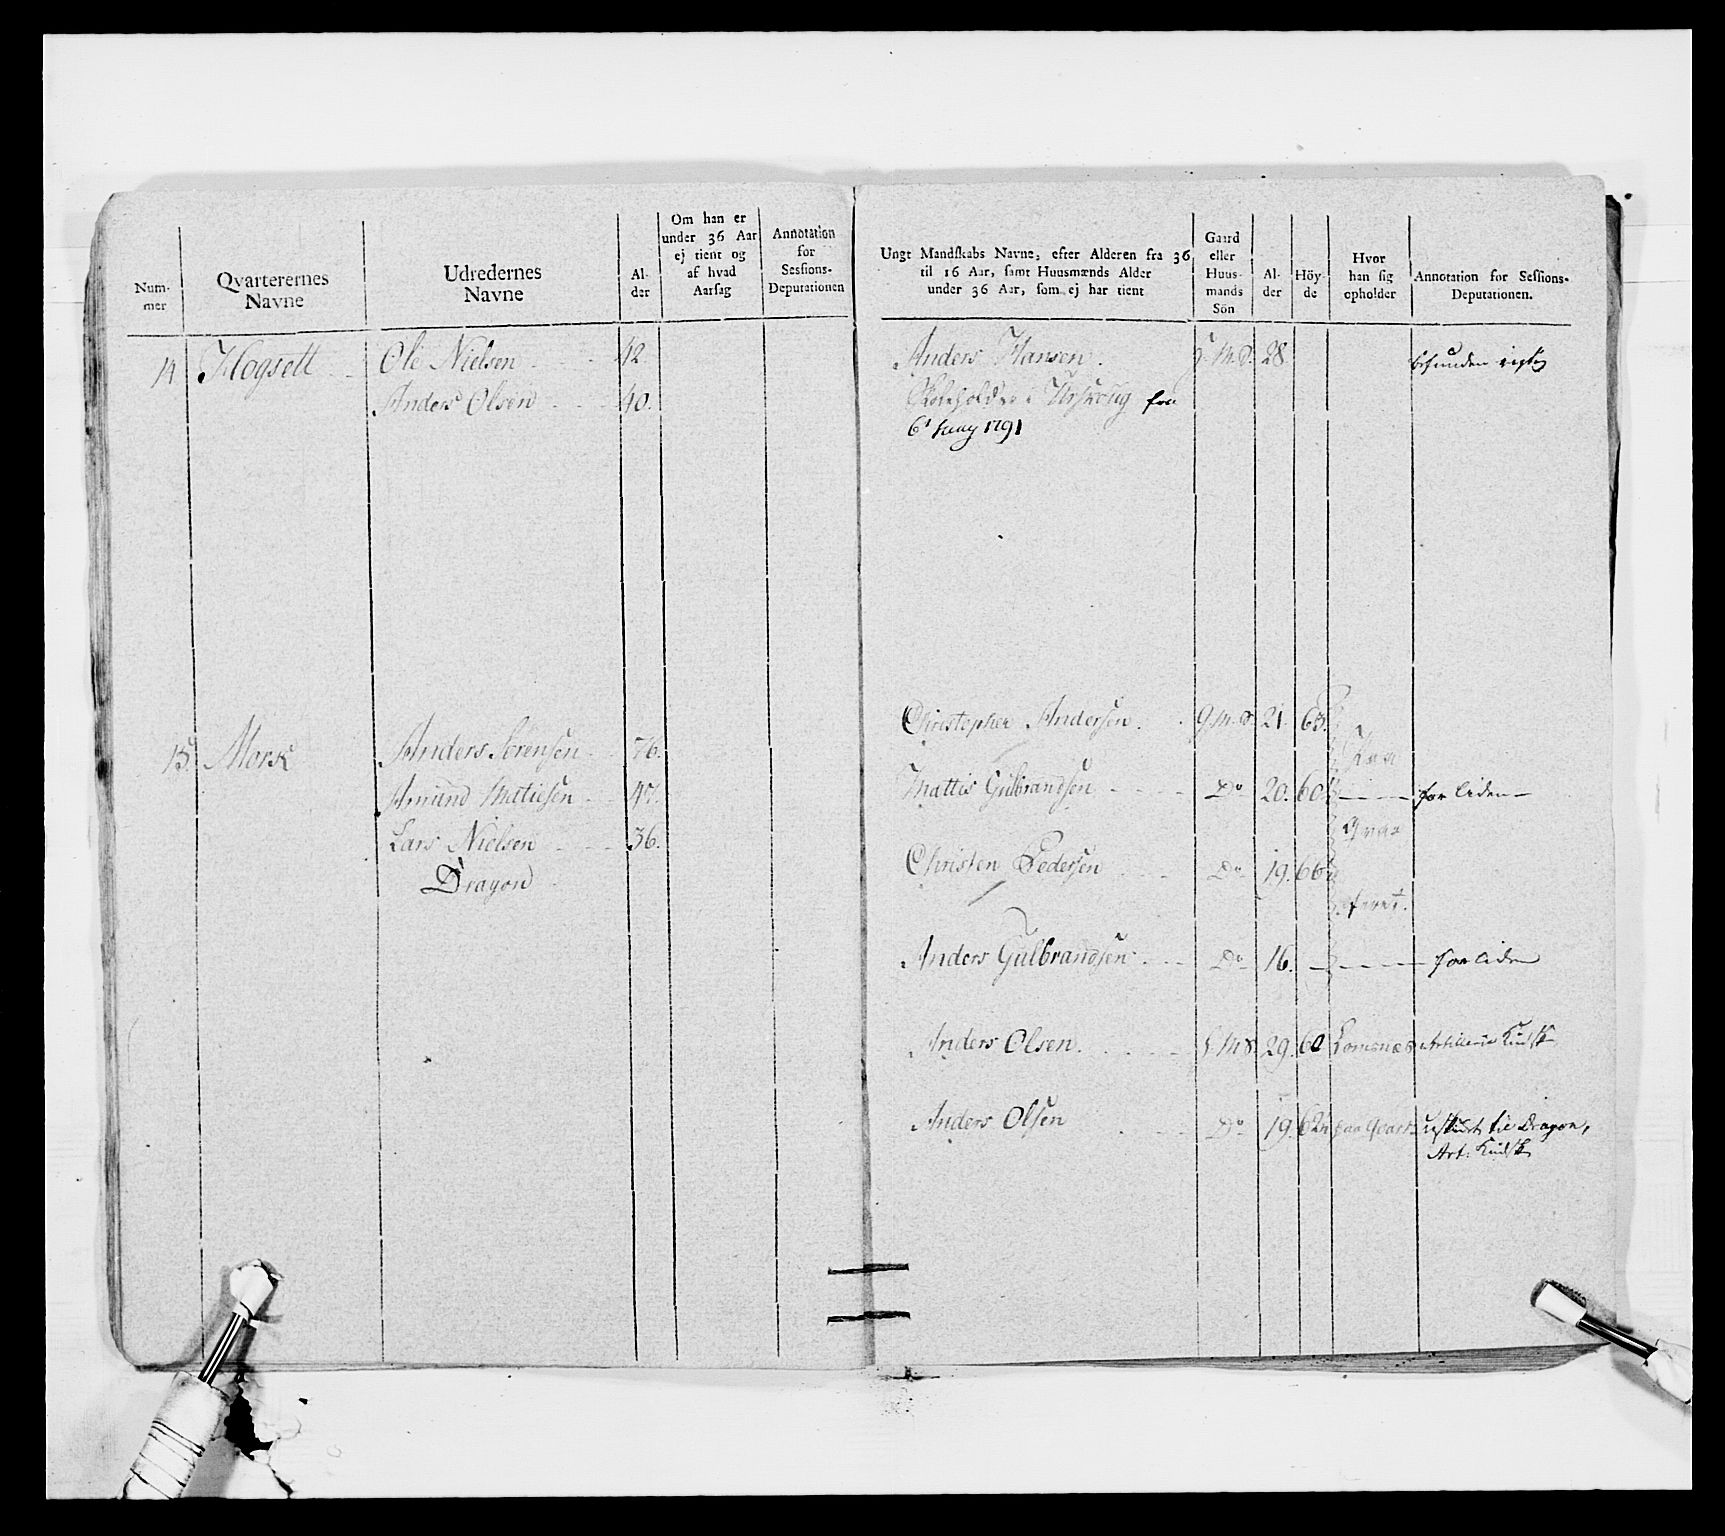 Nummer
Qvarterernes Navne
Udredernes Navne
Alder
Om han er under 36 Aar ej tient og af hvad Aarsag
Annotation for Sessions-Deputationen
14 Hogsett Ole Nielsen 42
Anders Olsen 40.
15. Mork Anders Sörensen 76.
Amund Matiesen 47.
Lars Nielsen 36.
Dragon
Ungt Mandskabs Navne, efter Alderen fra 36 til 16 Aar, samt Huusmænds Alder under 36 Aar, som ej har tient
Gaard eller Huusmands Sön
Alder
Höyde
Hvor han sig opholder
Annotation for Sessions-Deputationen.
Anders Hansen. G.M.S. 28. befunden rigtig
Skoleholder i Urskoug fra
6t Juny 1791
Christopher Andersen. G.M.S. 21. 63.
Paa
Mattis Gulbrandsen Do 20. 60 for liden
Qvar
Christen Pedersen Do 19. 66
teret.
Anders Gulbrandsen Do 16. for liden
Anders Olsen. 29. 60 Artillerie Kudsk
Anders Olsen Do 19. paa Qvart. udskudt til Dragon,
Art: Kudsk